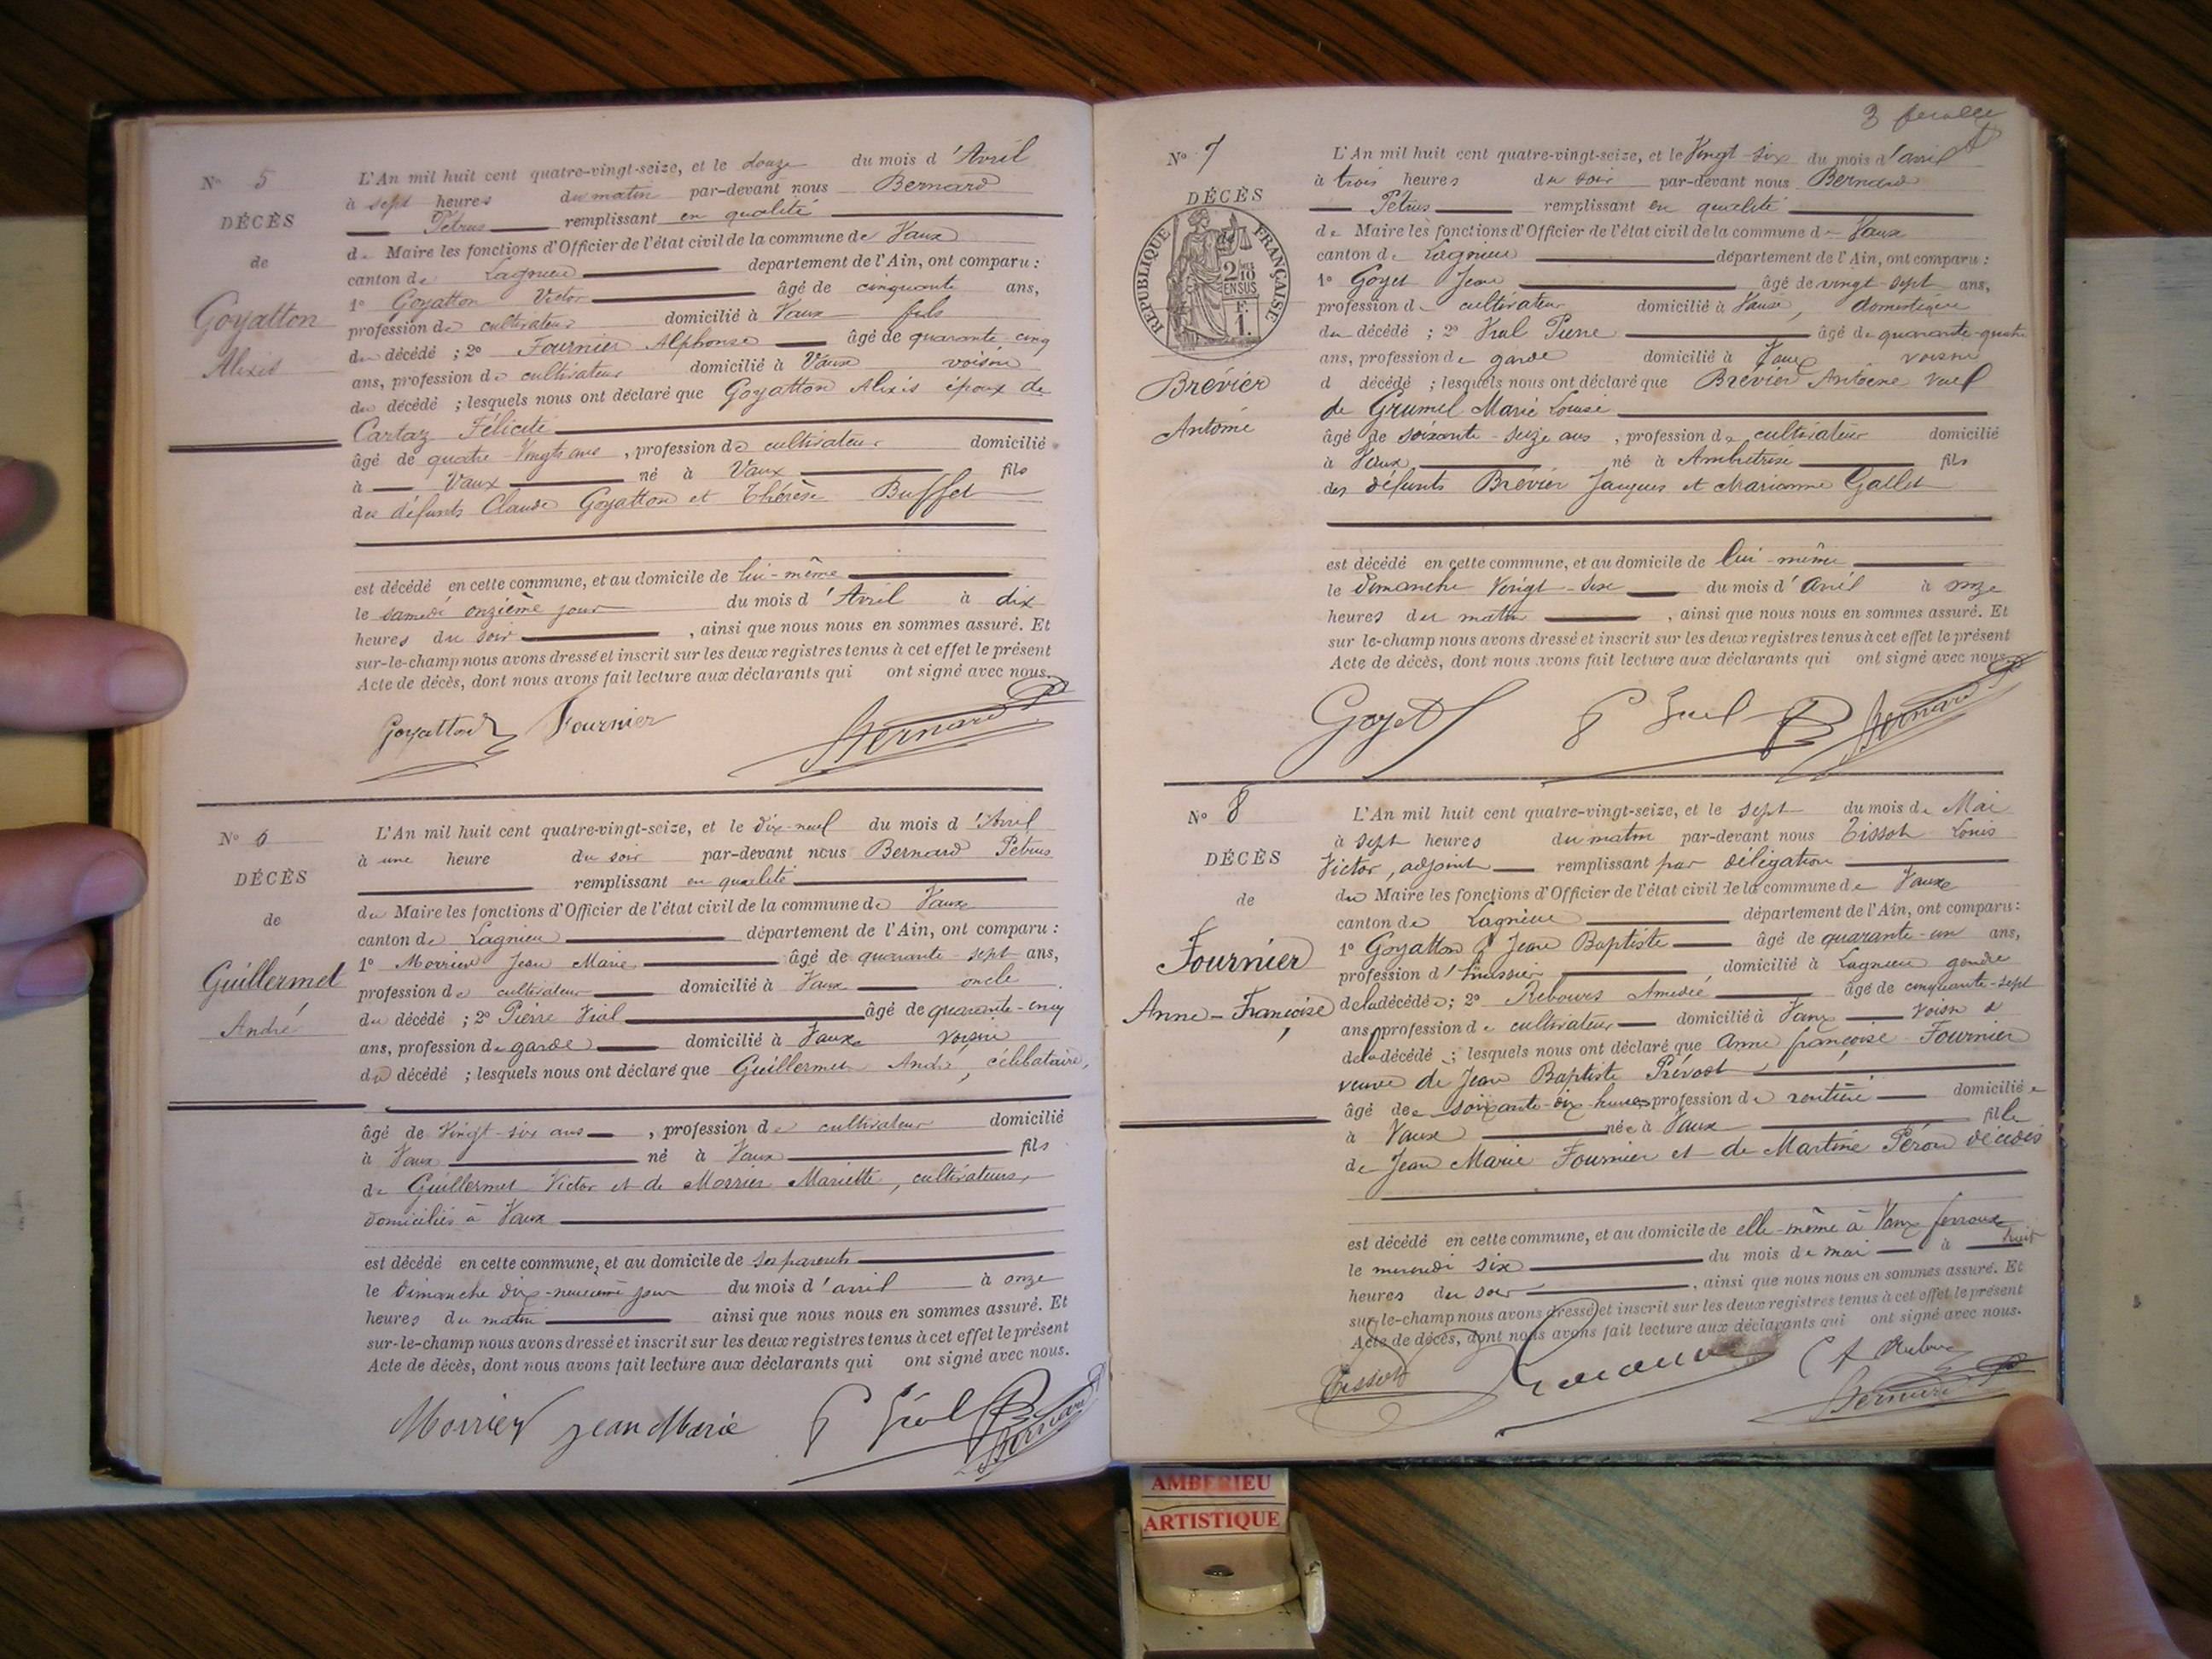 N° 5
DÉCÈS
de
Goyatton
Alexis
L'An mil huit cent quatre-vingt-seize, et le douze du mois d'Avril
à sept heures du matin par-devant nous Bernard
Pétrus remplissant en qualité
de Maire les fonctions d'Officier de l'état civil de la commune de Vaux
canton de Lagnieu département de l'Ain, ont comparu :
1° Goyatton Victor âgé de cinquante ans,
profession de cultivateur domicilié à Vaux fils
du décédé ; 2° Fournier Alphonse âgé de quarante cinq
ans, profession de cultivateur domicilié à Vaux voisin
du décédé ; lesquels nous ont déclaré que Goyatton Alexis époux de
Cartaz Félicité
âgé de quatre-vingts ans, profession de cultivateur domicilié
à Vaux né à Vaux fils
des défunts Claude Goyatton et Thérèse Buffet
est décédé en cette commune, et au domicile de lui-même
le samedi onzième jour du mois d'Avril à dix
heures du soir, ainsi que nous nous en sommes assuré. Et
sur-le-champ nous avons dressé et inscrit sur les deux registres tenus à cet effet le présent
Acte de décès, dont nous avons fait lecture aux déclarants qui ont signé avec nous.
Goyatton Fournier Bernard
N° 6
DÉCÈS
de
Guillermet
André
L'An mil huit cent quatre-vingt-seize, et le dix-neuf du mois d'Avril
à une heure du soir par-devant nous Bernard Pétrus
remplissant en qualité
de Maire les fonctions d'Officier de l'état civil de la commune de Vaux
canton de Lagnieu département de l'Ain, ont comparu :
1° Morrier Jean Marie âgé de quarante-sept ans,
profession de cultivateur domicilié à Vaux oncle
du décédé ; 2° Pierre Vial âgé de quarante-cinq
ans, profession de garde domicilié à Vaux voisin
du décédé ; lesquels nous ont déclaré que Guillermet André, célibataire,
âgé de vingt-six ans, profession de cultivateur domicilié
à Vaux né à Vaux fils
de Guillermet Victor et de Morrier Mariette, cultivateurs,
domiciliés à Vaux
est décédé en cette commune, et au domicile de ses parents
le Dimanche dix-neuvième jour du mois d'avril à onze
heures du matin ainsi que nous nous en sommes assuré. Et
sur-le-champ nous avons dressé et inscrit sur les deux registres tenus à cet effet le présent
Acte de décès, dont nous avons fait lecture aux déclarants qui ont signé avec nous.
Morrier Jean Marie P Vial Bernard
3
N° 7
DÉCÈS
de
RÉPUBLIQUE FRANÇAISE
2/10 EN SUS
F.
1.
Brévier
Antoine
L'An mil huit cent quatre-vingt-seize, et le Vingt-six du mois d'avril
à trois heures du soir par-devant nous Bernard
Pétrus remplissant en qualité
de Maire les fonctions d'Officier de l'état civil de la commune de Vaux
canton de Lagnieu département de l'Ain, ont comparu :
1° Goyet Jean âgé de vingt-sept ans,
profession de cultivateur domicilié à Vaux, domestique
du décédé ; 2° Vial Pierre âgé de quarante-quatre
ans, profession de garde domicilié à Vaux voisin
d décédé ; lesquels nous ont déclaré que Brévier Antoine veuf
de Grumel Marie Louise
âgé de soixante-seize ans, profession de cultivateur domicilié
à Vaux né à fils
des défunts Brévier Jacques et Marianne Gallet
est décédé en cette commune, et au domicile de lui-même
le Dimanche Vingt-six du mois d'avril à onze
heures du matin, ainsi que nous nous en sommes assuré. Et
sur-le-champ nous avons dressé et inscrit sur les deux registres tenus à cet effet le présent
Acte de décès, dont nous avons fait lecture aux déclarants qui ont signé avec nous.
Goyet P Vial Bernard
N° 8
DÉCÈS
de
Fournier
Anne-Françoise
L'An mil huit cent quatre-vingt-seize, et le sept du mois de Mai
à sept heures du matin par-devant nous Tissot Louis
Victor, adjoint remplissant par délégation
du Maire les fonctions d'Officier de l'état civil de la commune de Vaux
canton de Lagnieu département de l'Ain, ont comparu :
1° Goyatton Jean Baptiste âgé de quarante-un ans,
profession d'huissier, domicilié à Lagnieu gendre
de la décédée ; 2° Rebours Amédée âgé de cinquante-sept
ans, profession de cultivateur domicilié à Vaux voisin
de la décédé ; lesquels nous ont déclaré que Anne françoise Fournier
veuve de Jean Baptiste Prévost,
âgée de soixante-dix-huit profession de rentière domiciliée
à Vaux née à Vaux fille
de Jean Marie Fournier et de Martine Péron décédés
est décédé en cette commune, et au domicile de elle-même à Vaux
le mercredi six du mois de mai à huit
heures du soir, ainsi que nous nous en sommes assuré. Et
sur-le-champ nous avons dressé et inscrit sur les deux registres tenus à cet effet le présent
Acte de décès, dont nous avons fait lecture aux déclarants qui ont signé avec nous.
Tissot Bernard
AMBERIEU
ARTISTIQUE